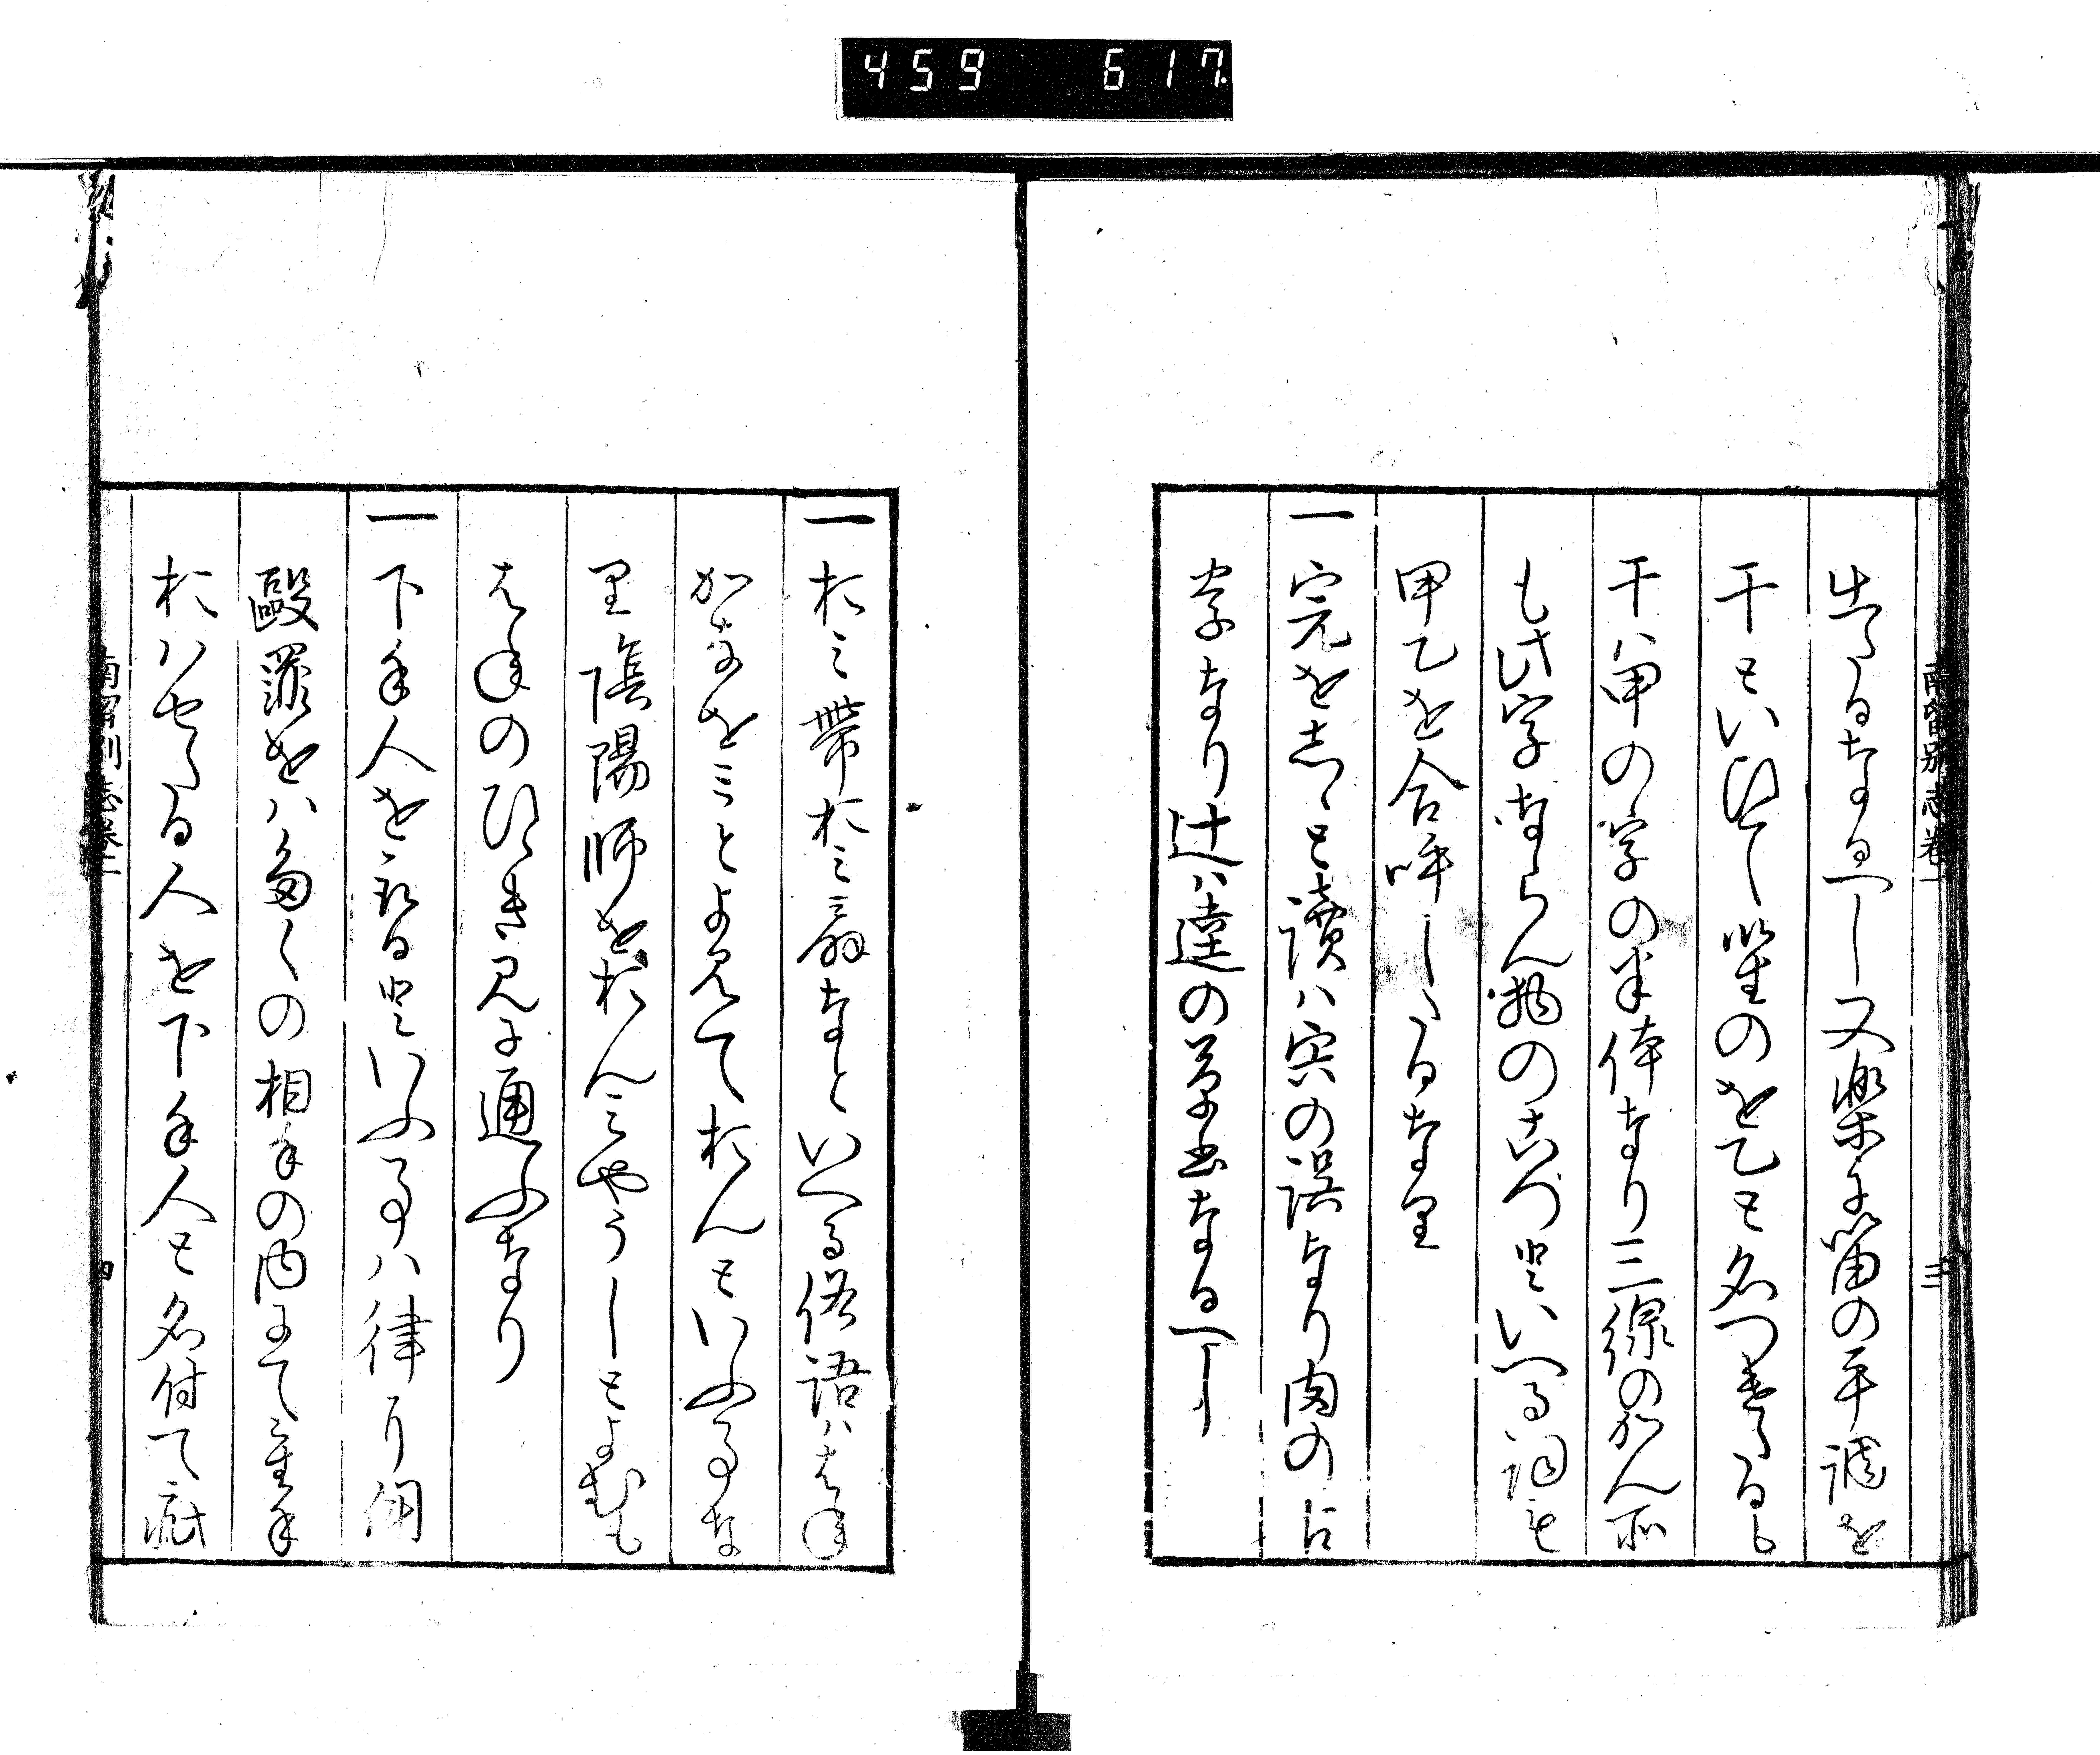 459 617
南留別志卷一 三
出たるなるへし又楽に笛の平調を
干といひて笙のを乙と名つけたるも
干ハ甲の字の半体なり三線のかん所
も此字ならん物のかつといへる詞も
甲乙を合呼したるなり
一宍をしゝと讀ハ宍の誤なり肉の古
字なり辻ハ達の草書なるへし
一おみ帯おみ扇なといへる俗語ハはね
かなをミとよみておんといふ事な
り陰陽師をおんみやうしとよむも
はねのひゝき見に通ふなり
一下手人を取るといふ事ハ律に聞
毆罪をハ多くの相手の内にて重手
おハせたる人を下手人と名付て疵
南留別志卷一 四